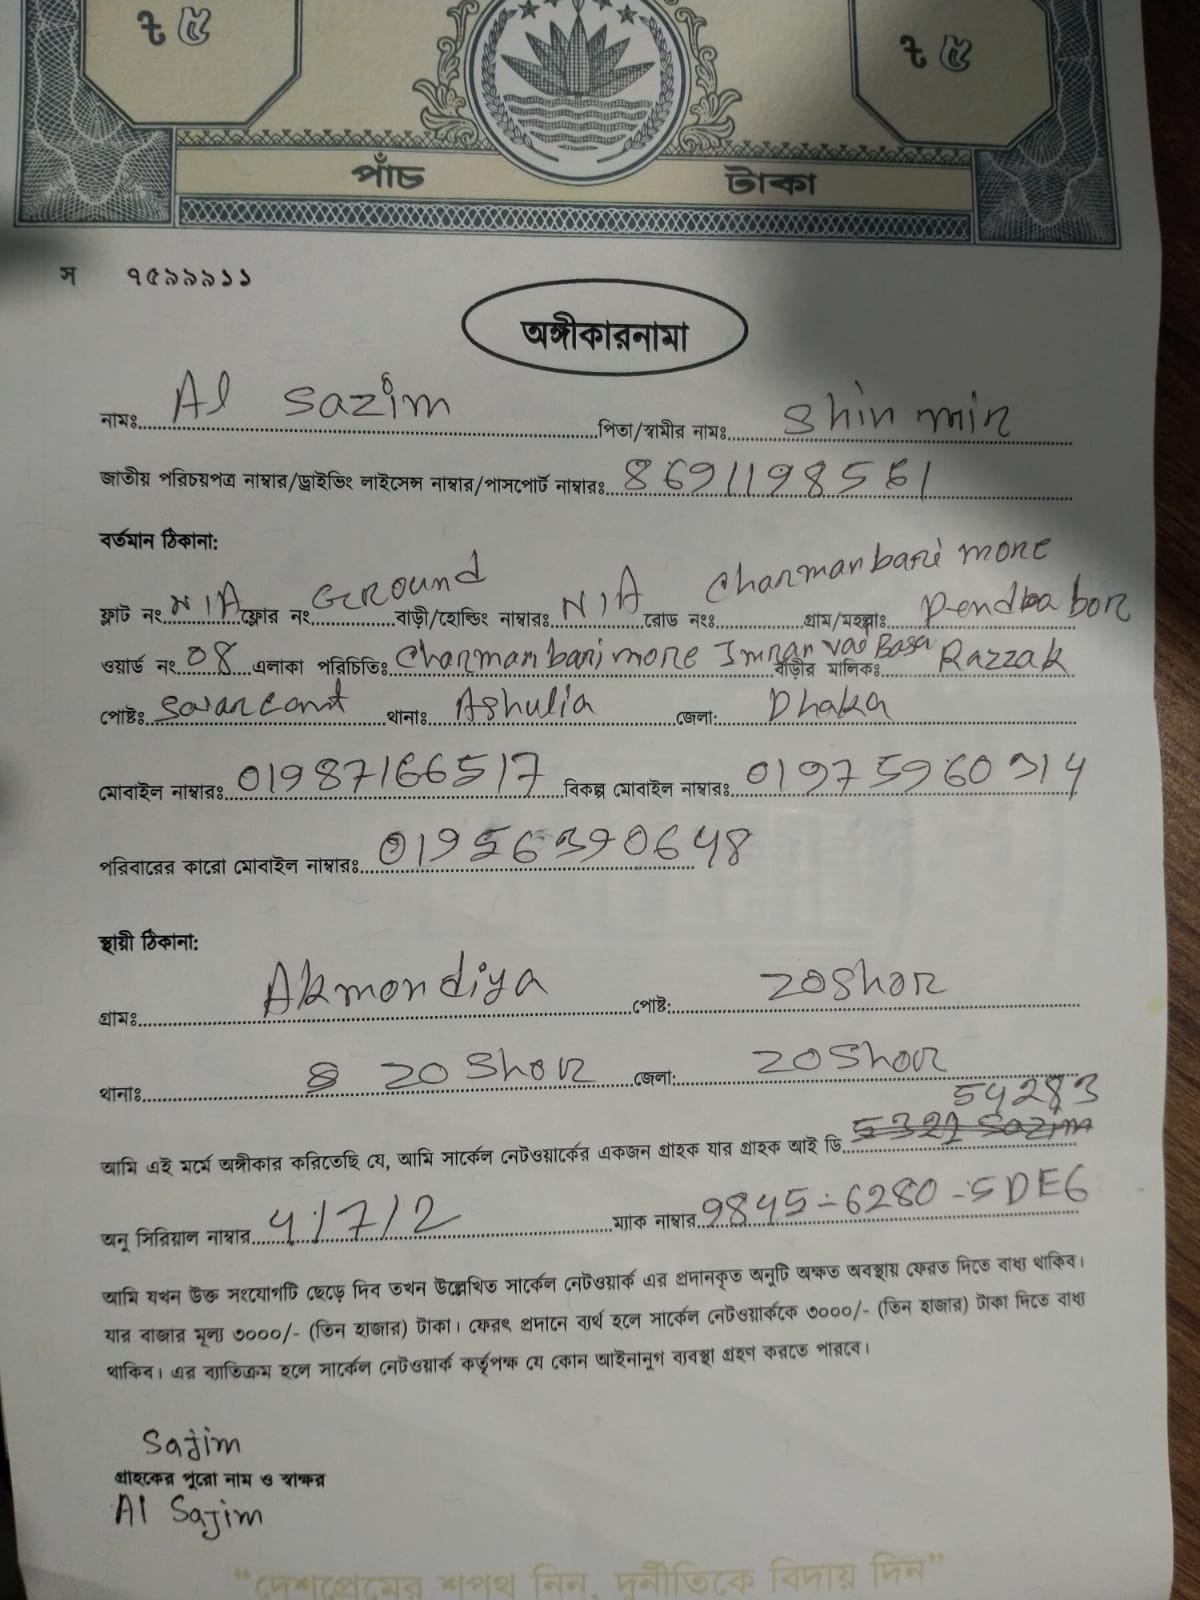 ৳ ৫ ৳ ৫
পাঁচ টাকা
স ৭৫৯৯৯১১
অঙ্গীকারনামা
নামঃ Al Sazim পিতা/স্বামীর নামঃ Shin min
জাতীয় পরিচয়পত্র নাম্বার/ড্রাইভিং লাইসেন্স নাম্বার/পাসপোর্ট নাম্বারঃ 8691198561
বর্তমান ঠিকানা:
ফ্লাট নং N/A ফ্লোর নং Ground বাড়ী/হোল্ডিং নাম্বারঃ N/A রোড নংঃ Charman bari more গ্রাম/মহল্লাঃ
ওয়ার্ড নং 08 এলাকা পরিচিতিঃ Charman bari more Imran vao Basa বাড়ীর মালিকঃ Razzak
পোষ্টঃ থানাঃ Ashulia জেলা: Dhaka
মোবাইল নাম্বারঃ 01987166517 বিকল্প মোবাইল নাম্বারঃ
পরিবারের কারো মোবাইল নাম্বারঃ
স্থায়ী ঠিকানা:
গ্রামঃ Akmondiya পোষ্ট: ZoShor
থানাঃ ZoShor জেলা: ZoShor
54283
আমি এই মর্মে অঙ্গীকার করিতেছি যে, আমি সার্কেল নেটওয়ার্কের একজন গ্রাহক যার গ্রাহক আই ডি 5321 Sazim
অনু সিরিয়াল নাম্বার 4/7/2 ম্যাক নাম্বার 9845-6280-5DE6
আমি যখন উক্ত সংযোগটি ছেড়ে দিব তখন উল্লেখিত সার্কেল নেটওয়ার্ক এর প্রদানকৃত অনুটি অক্ষত অবস্থায় ফেরত দিতে বাধ্য থাকিব।
যার বাজার মূল্য ৩০০০/- (তিন হাজার) টাকা। ফেরৎ প্রদানে ব্যর্থ হলে সার্কেল নেটওয়ার্ককে ৩০০০/- (তিন হাজার) টাকা দিতে বাধ্য
থাকিব। এর ব্যাতিক্রম হলে সার্কেল নেটওয়ার্ক কর্তৃপক্ষ যে কোন আইনানুগ ব্যবস্থা গ্রহণ করতে পারবে।
Sajim
গ্রাহকের পুরো নাম ও স্বাক্ষর
Al Sajim
“দেশপ্রেমের শপথ নিন, দুর্নীতিকে বিদায় দিন”